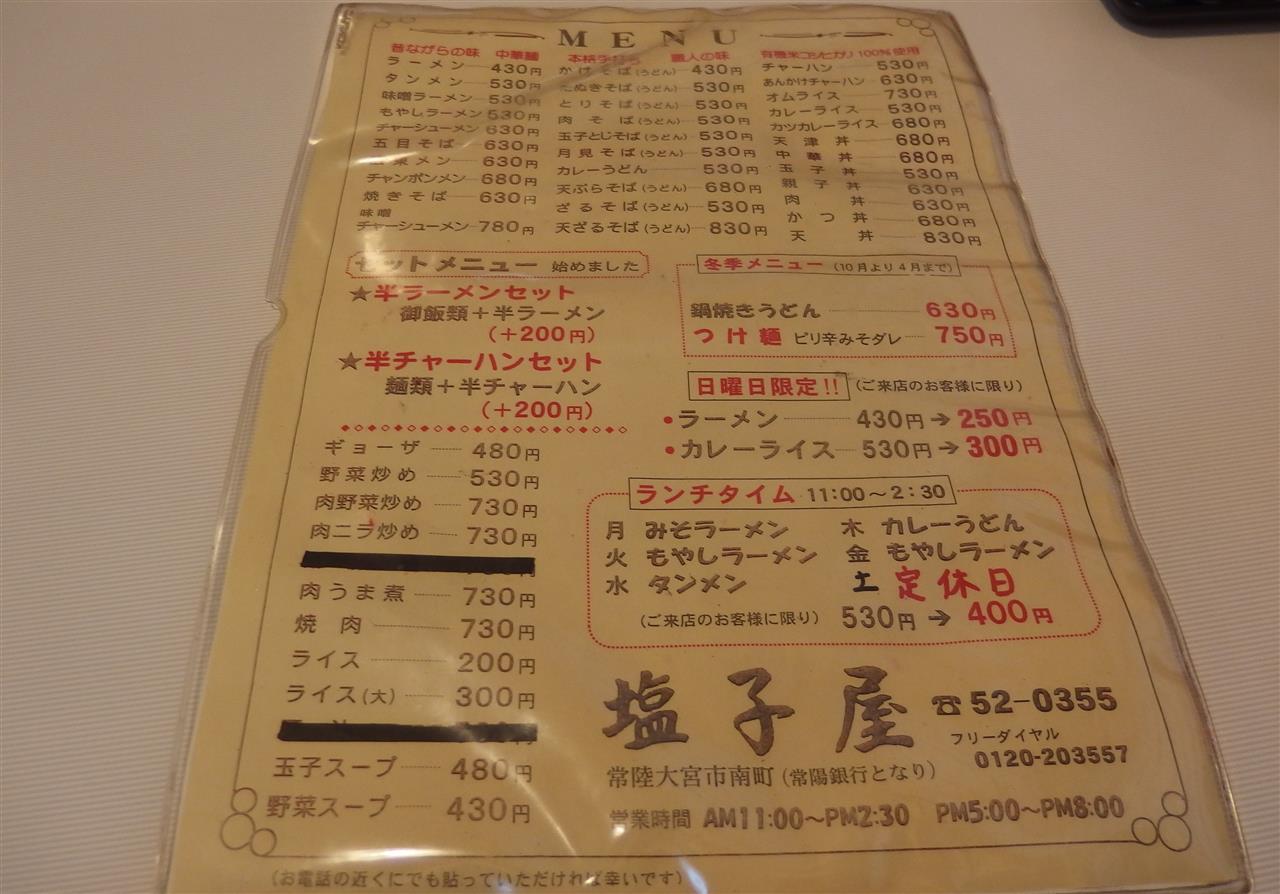 MENU
昔ながらの味 中華麺
ラーメン 430円
タンメン 530円
味噌ラーメン 530円
もやしラーメン 530円
チャーシューメン 630円
五目そば 630円
メン 630円
チャンポンメン 680円
焼きそば 630円
味噌
チャーシューメン 780円
本格手打ち 職人の味
かけそば(うどん) 430円
たぬきそば(うどん) 530円
とりそば(うどん) 530円
肉そば(うどん) 530円
玉子とじそば(うどん) 530円
月見そば(うどん) 530円
カレーうどん 530円
天ぷらそば(うどん) 680円
ざるそば(うどん) 530円
天ざるそば(うどん) 830円
有機米コシヒカリ100%使用
チャーハン 530円
あんかけチャーハン 630円
オムライス 730円
カレーライス 530円
カツカレーライス 680円
天津丼 680円
中華丼 680円
玉子丼 530円
親子丼 630円
肉丼 630円
かつ丼 680円
天丼 830円
セットメニュー 始めました
★半ラーメンセット
御飯類+半ラーメン
(+200円)
★半チャーハンセット
麺類+半チャーハン
(+200円)
ギョーザ 480円
野菜炒め 530円
肉野菜炒め 730円
肉ニラ炒め 730円
肉うま煮 730円
焼肉 730円
ライス 200円
ライス(大) 300円
玉子スープ 480円
野菜スープ 430円
冬季メニュー (10月より4月まで)
鍋焼きうどん 630円
つけ麺 ピリ辛みそダレ 750円
日曜日限定!! (ご来店のお客様に限り)
•ラーメン 430円→250円
•カレーライス 530円→300円
ランチタイム 11:00〜2:30
月 みそラーメン 木 カレーうどん
火 もやしラーメン 金 もやしラーメン
水 タンメン 土 定休日
(ご来店のお客様に限り) 530円→400円
塩子屋
☎52-0355
フリーダイヤル
0120-203557
常陸大宮市南町(常陽銀行となり)
営業時間 AM11:00〜PM2:30 PM5:00〜PM8:00
(お電話の近くにでも貼っていただければ幸いです)